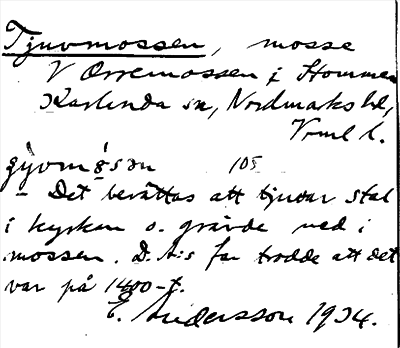 Tjuvmossen, mosse
V Orremossen i Hommen
Karlanda sn, Nordmarks hd,
Vrml l.
105
– Det berättas att tjuvar stal
i kyrkan o. grävde ned i
mossen. D. A:s far trodde att det
var på 1400-t.
E. Andersson 1934.